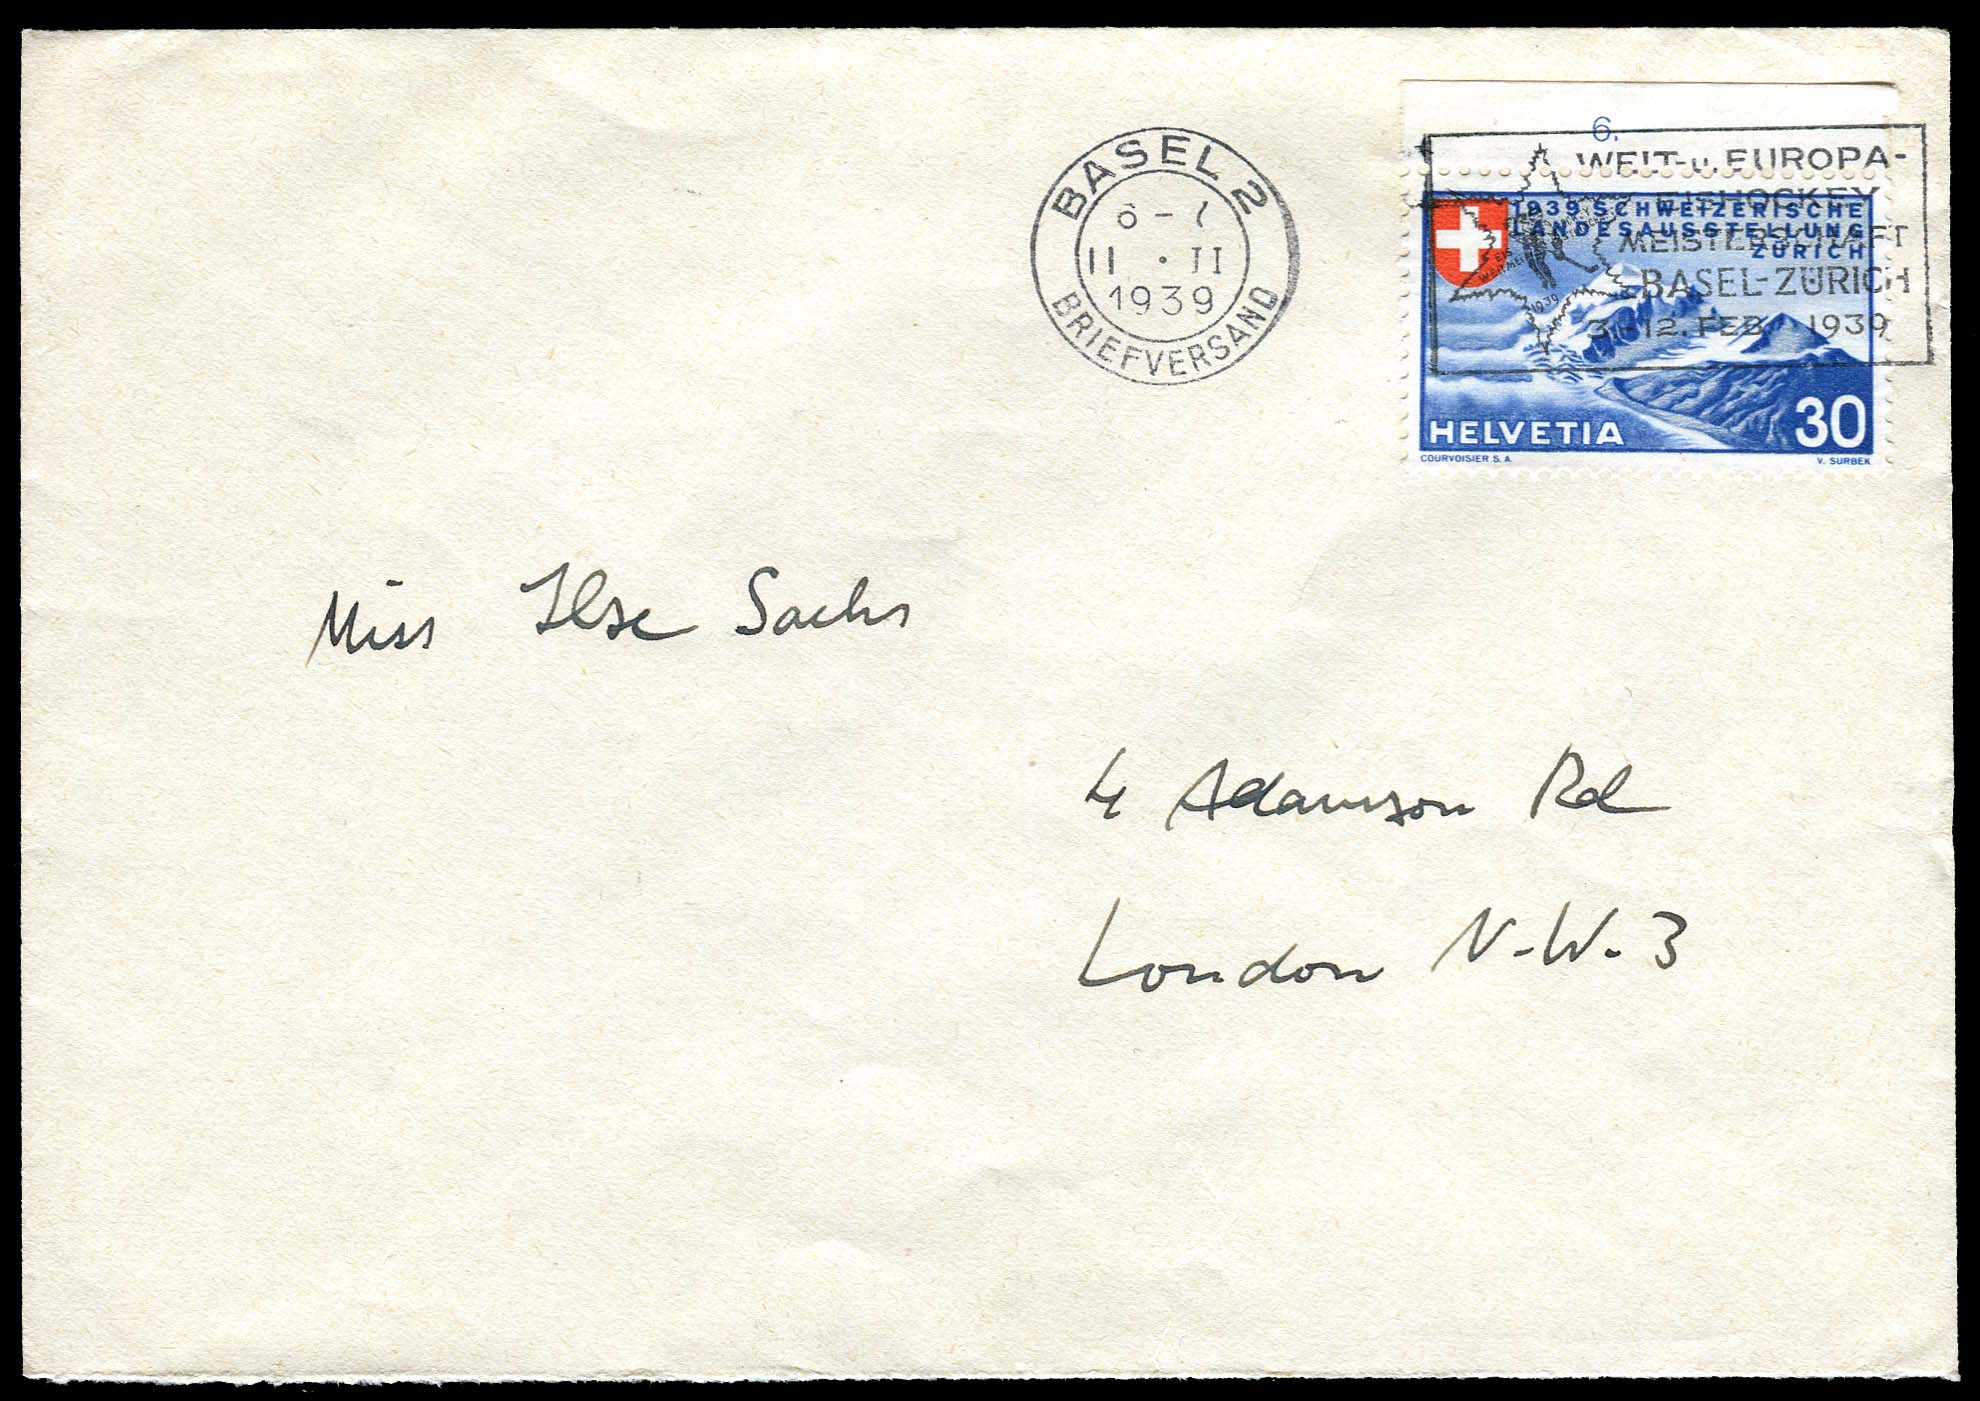 BASEL 2
6-7
11 · II
1939
BRIEFVERSAND
6.
WELT- u. EUROPA-
EISHOCKEY
MEISTERSCHAFT
BASEL-ZÜRICH
3.-12. FEB. 1939
1939
1939 SCHWEIZERISCHE
LANDESAUSSTELLUNG
ZÜRICH
HELVETIA
30
COURVOISIER S. A.
V. SURBEK
Miss Ilse Sachs
4 Adamson Rd
London N.W. 3